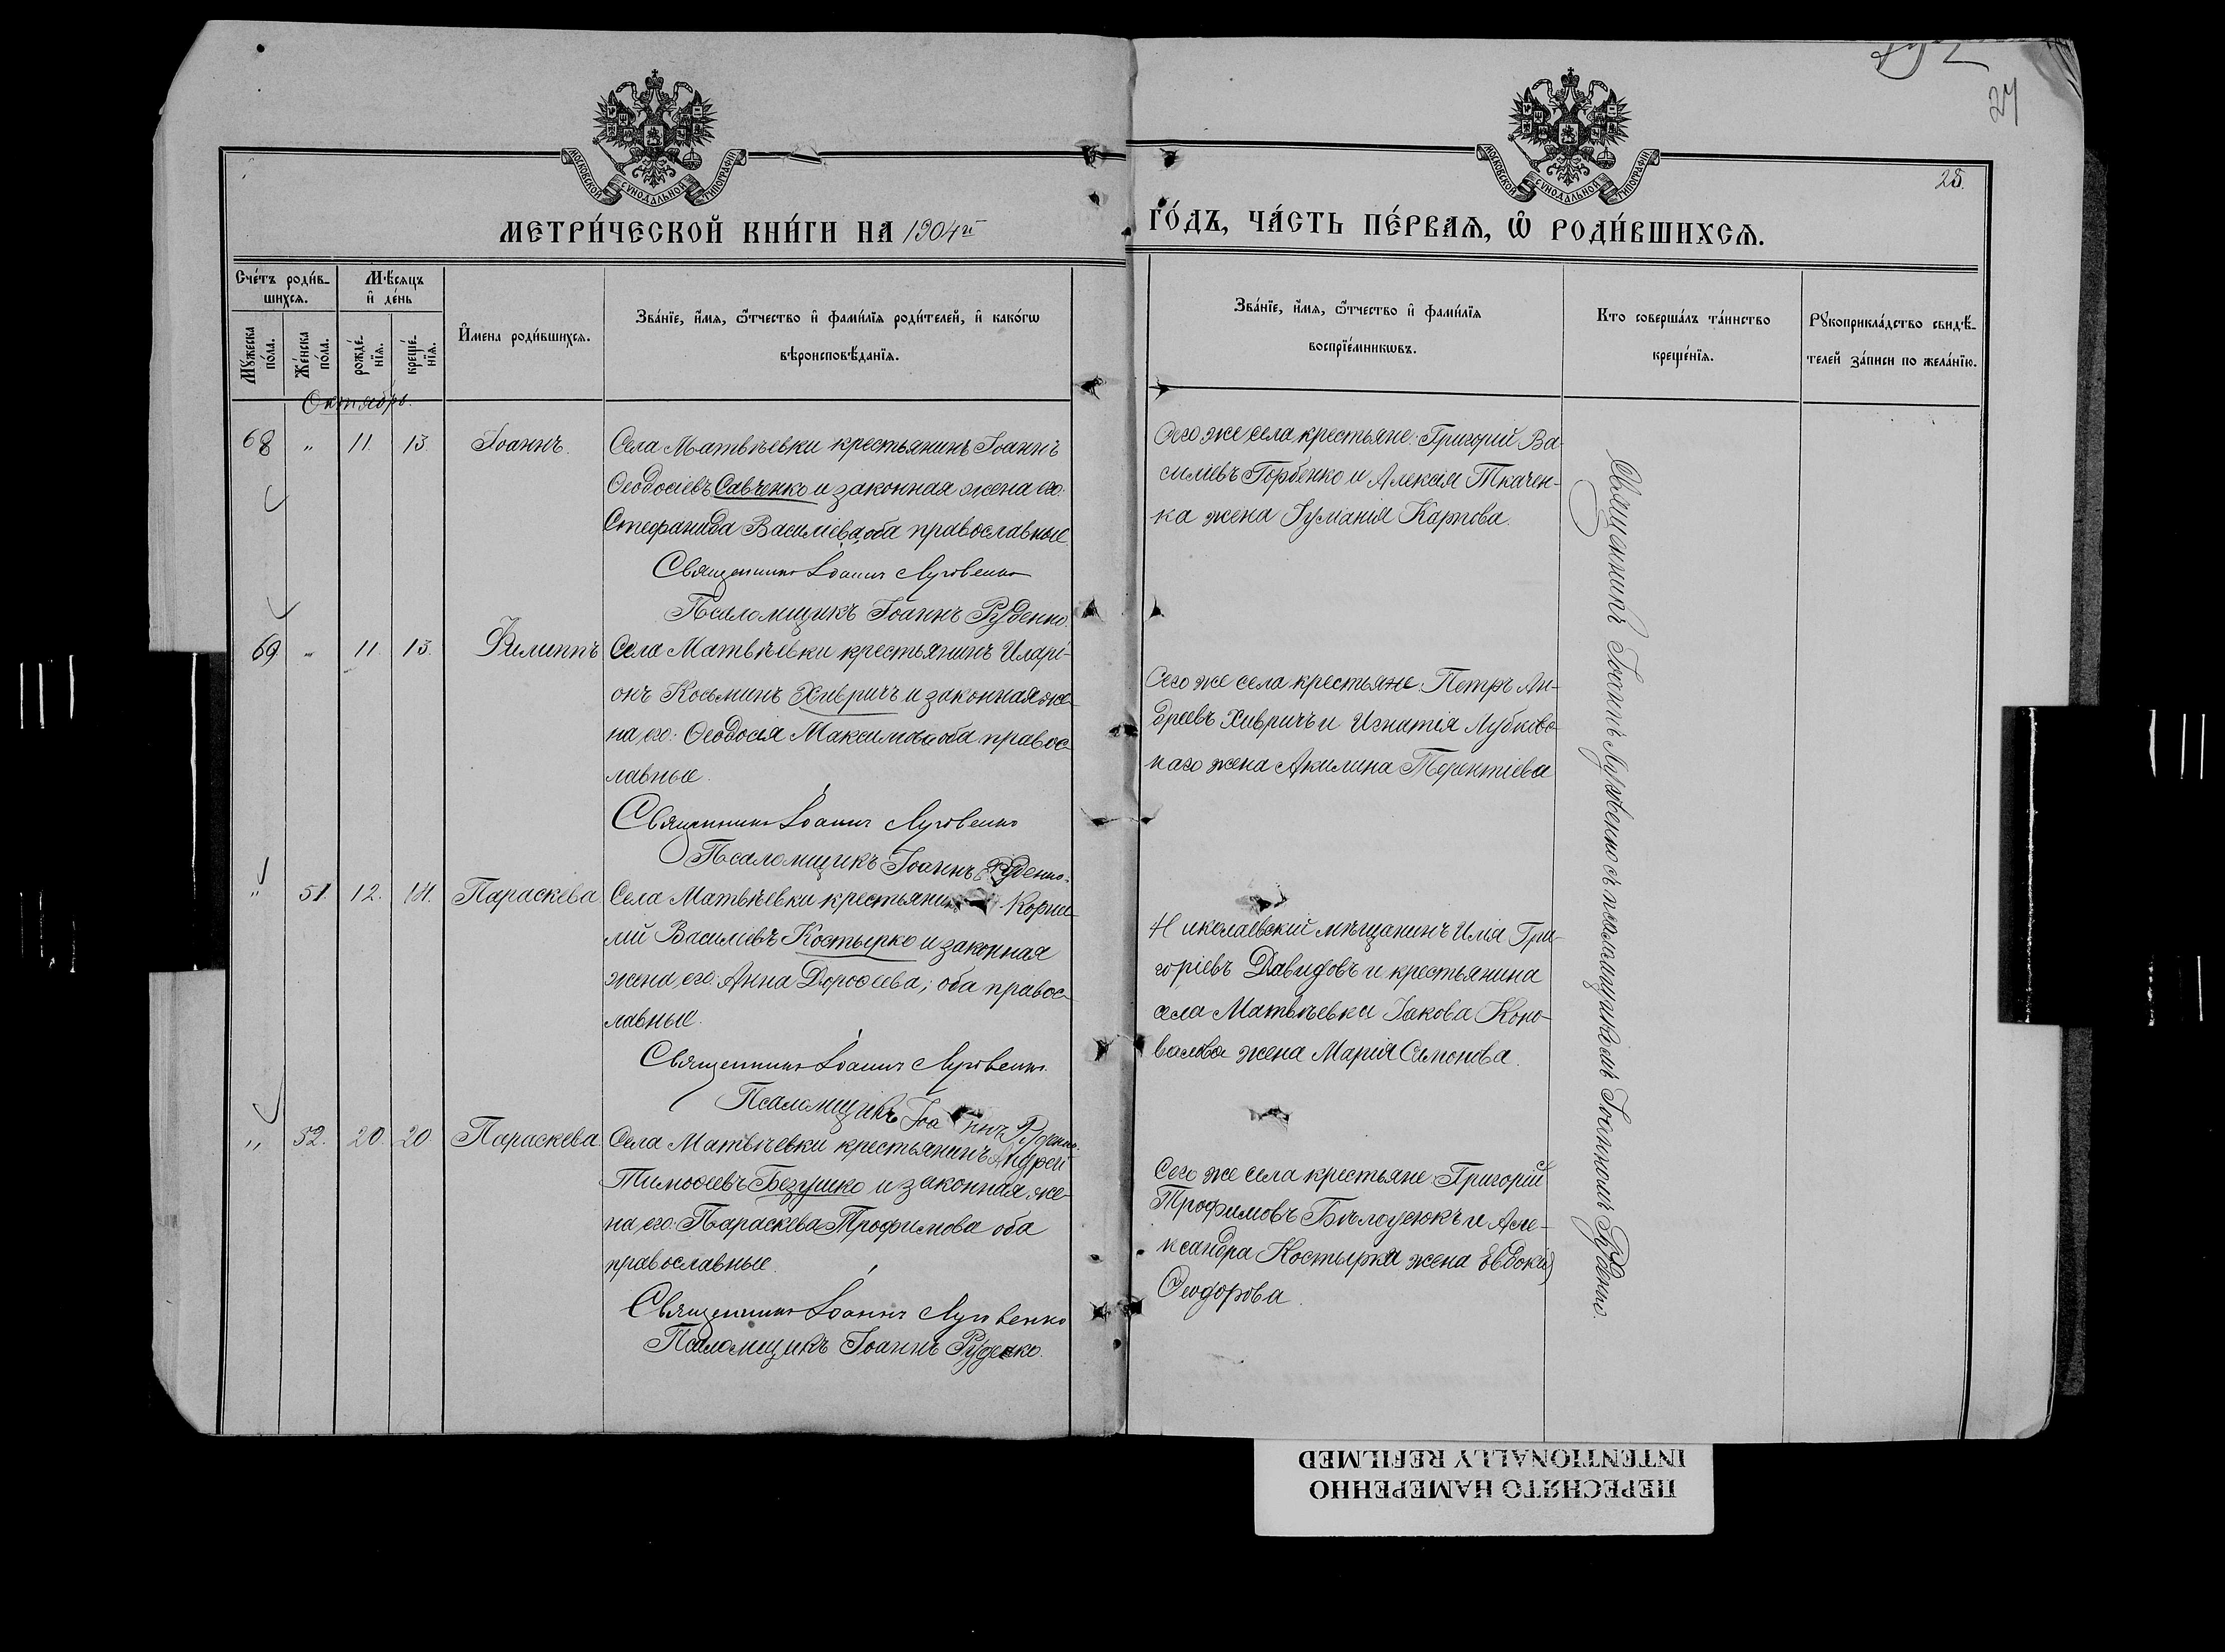 27
МОСКОВСКОЙ СУНОДАЛЬНОЙ ТИПОГРАФІИ
МОСКОВСКОЙ СУНОДАЛЬНОЙ ТИПОГРАФІИ
25.
МЕТРИ́ЧЕСКОЙ КНИ́ГИ НА 1904й
ГО́ДЪ, ЧА́СТЬ ПЕ́РВАѦ, Ѡ҆ РОДИ́ВШИХСѦ.
Сче́тъ роди́в-
шихсѧ.
Мꙋ́жеска
по́ла.
Же́нска
по́ла.
Мѣ́сѧцъ
и҆ де́нь
рожде́-
нїѧ.
креще́-
нїѧ.
И҆мена роди́вшихсѧ.
Зва́нїе, и҆́мѧ, ѻ҆́тчество и҆ фами́лїѧ роди́телей, и҆ како́гѡ
вѣроисповѣ́данїѧ.
Зва́нїе, и҆́мѧ, ѻ҆́тчество и҆ фами́лїѧ
воспрїе́мникѡвъ.
Кто соверша́лъ та́инство
креще́нїѧ.
Рꙋкоприкла́дство свидѣ́-
телей за́писи по жела́нїю.
Октябрь.
68 " 11. 13. Іоаннъ.
Села Матвѣевки крестьянинъ Іоаннъ
Ѳеодосіевъ Савченко и законная жена его:
Стефанида Василіева, оба православные.
Священникъ Іоаннъ Луговенко
Псаломщикъ Іоаннъ Руденко.
Сего же села крестьяне: Григорій Ва-
силіевъ Горбенко и Алексія Ткачен-
ка жена Іуліанія Карпова.
69 " 11. 13. Филиппъ
Села Матвѣевки крестьянинъ Иларі-
онъ Косьминъ Хивричъ и законная же-
на его: Ѳеодосія Максимова оба правос-
лавные.
Священникъ Іоаннъ Луговенко
Псаломщикъ Іоаннъ Руденко.
Сего же села крестьяне: Петръ Ан-
дреевъ Хивричъ и Игнатія
жена Акилина Терентіева
" 51. 12. 14. Параскева
Села Матвѣевки крестьянинъ Корни-
лій Василіевъ Костырко и законная
жена его: Анна Дороѳеева; оба правос-
лавные.
Священникъ Іоаннъ Луговенко.
Псаломщикъ Іоаннъ Руденко.
Николаевскій мѣщанинъ Илія Гри-
горіевъ Давидовъ и крестьянина
села Матвѣевки Іакова Коно-
валова жена Марія Симонова.
" 52. 20. 20 Параскева
Села Матвѣевки крестьянинъ Андрей
Тимоѳеевъ Безушко и законная же-
на его: Параскева Трофимова оба
православные.
Священникъ Іоаннъ Луговенко
Псаломщикъ Іоаннъ Руденко.
Сего же села крестьяне: Григорій
Трофимовъ и Але-
ксандра Костырка жена Евдокія
Ѳеодорова.
Священникъ Іоаннъ Луговенко съ псаломщикомъ Іоанномъ Руденко.
ПЕРЕСНЯТО НАМЕРЕННО
INTENTIONALLY REFILMED